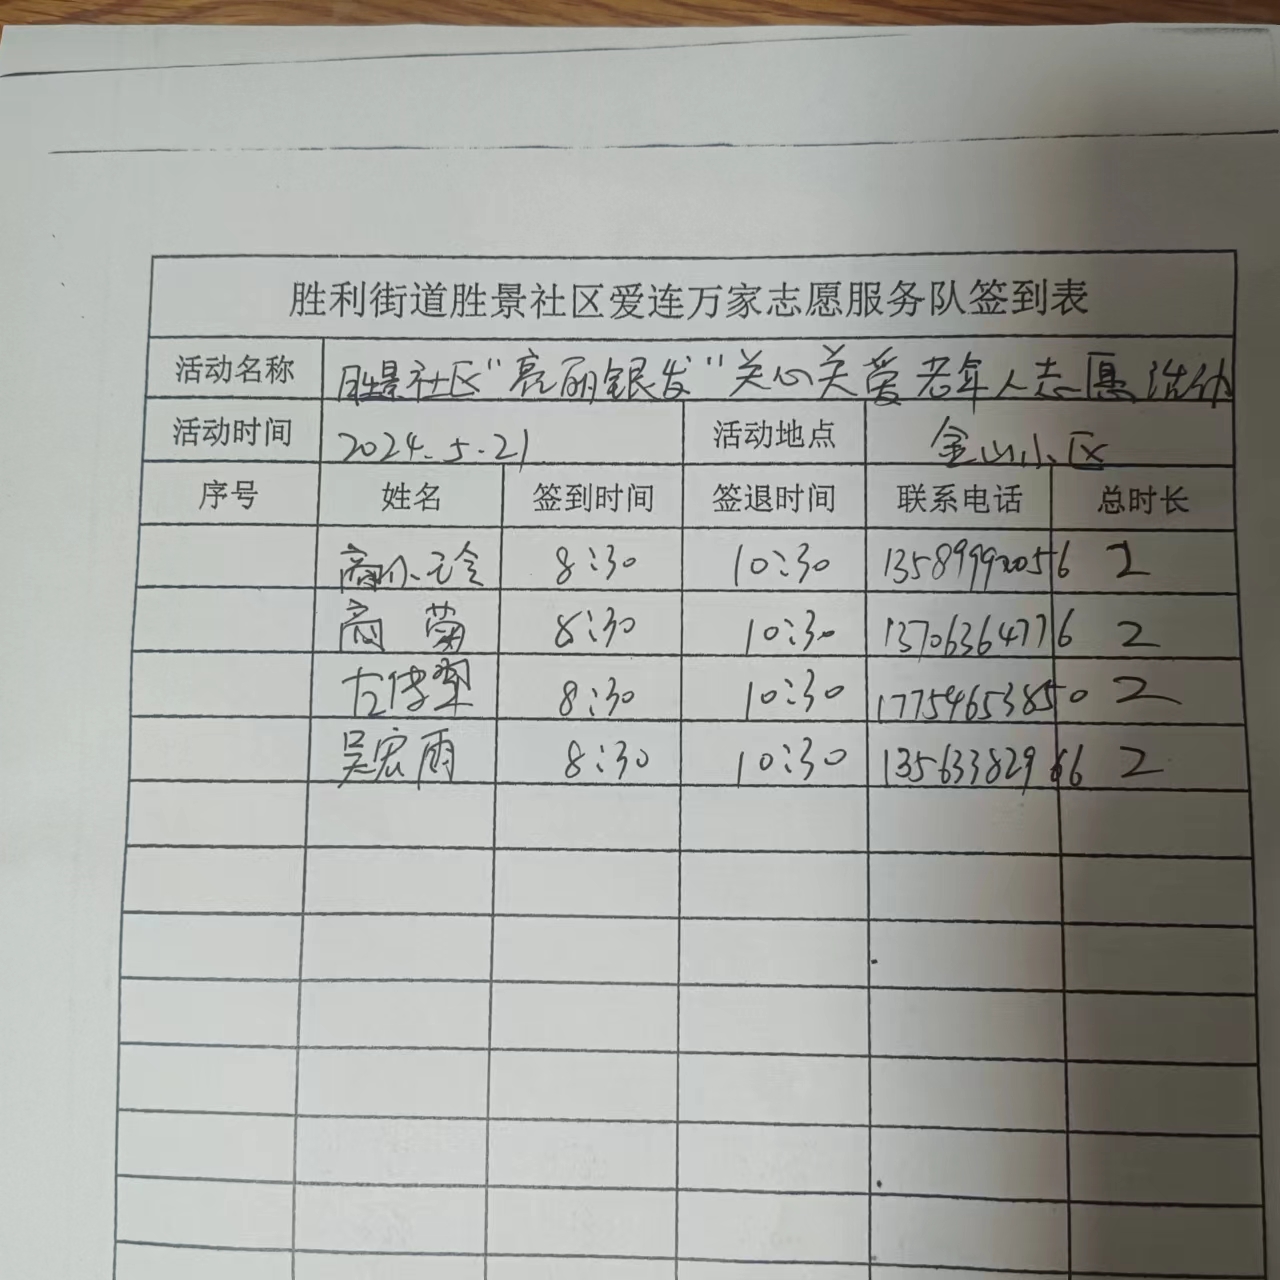 胜利街道胜景社区爱连万家志愿服务队签到表
活动名称 胜景社区“亮丽银发”关心关爱老年人志愿活动
活动时间 2024.5.21 活动地点 金山小区
序号 姓名 签到时间 签退时间 联系电话 总时长
商小冷 8:30 10:30 13589992056 2
商菊 8:30 10:30 13706364776 2
左传翠 8:30 10:30 17754653850 2
吴宏雨 8:30 10:30 13563382966 2